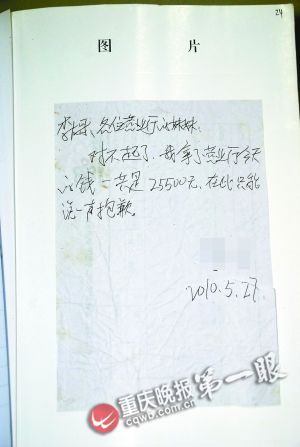 24
图 片
李深、各位营业厅的妹妹:
对不起了,我拿了营业厅今天
的钱一共是25500元,在此只能
说一声抱歉。
2010.5.27.
重庆晚报 第一眼
www.cqwb.com.cn